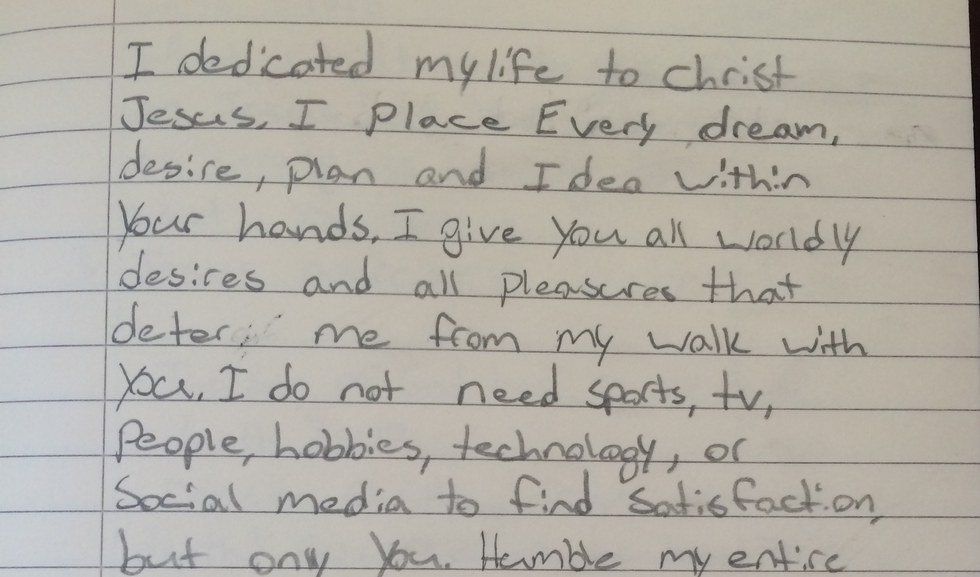 I dedicated my life to Christ
Jesus. I Place Every dream,
desire, plan and Idea within
Your hands. I give You all worldly
desires and all pleasures that
deter me from my walk with
You. I do not need sports, tv,
People, hobbies, technology, or
Social media to find satisfaction,
but only You. Humble my entire